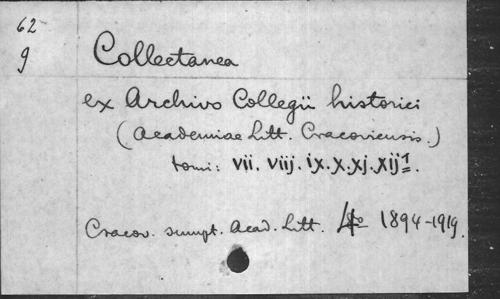 62
9
Collectanea
ex Archivo Collegii historici
(Academiae Litt. Cracoviensis.)
tomi: vii. viij. ix. x. xj. xij¹.
Cracov. sumpt. Acad. Litt. 4to 1894-1919.